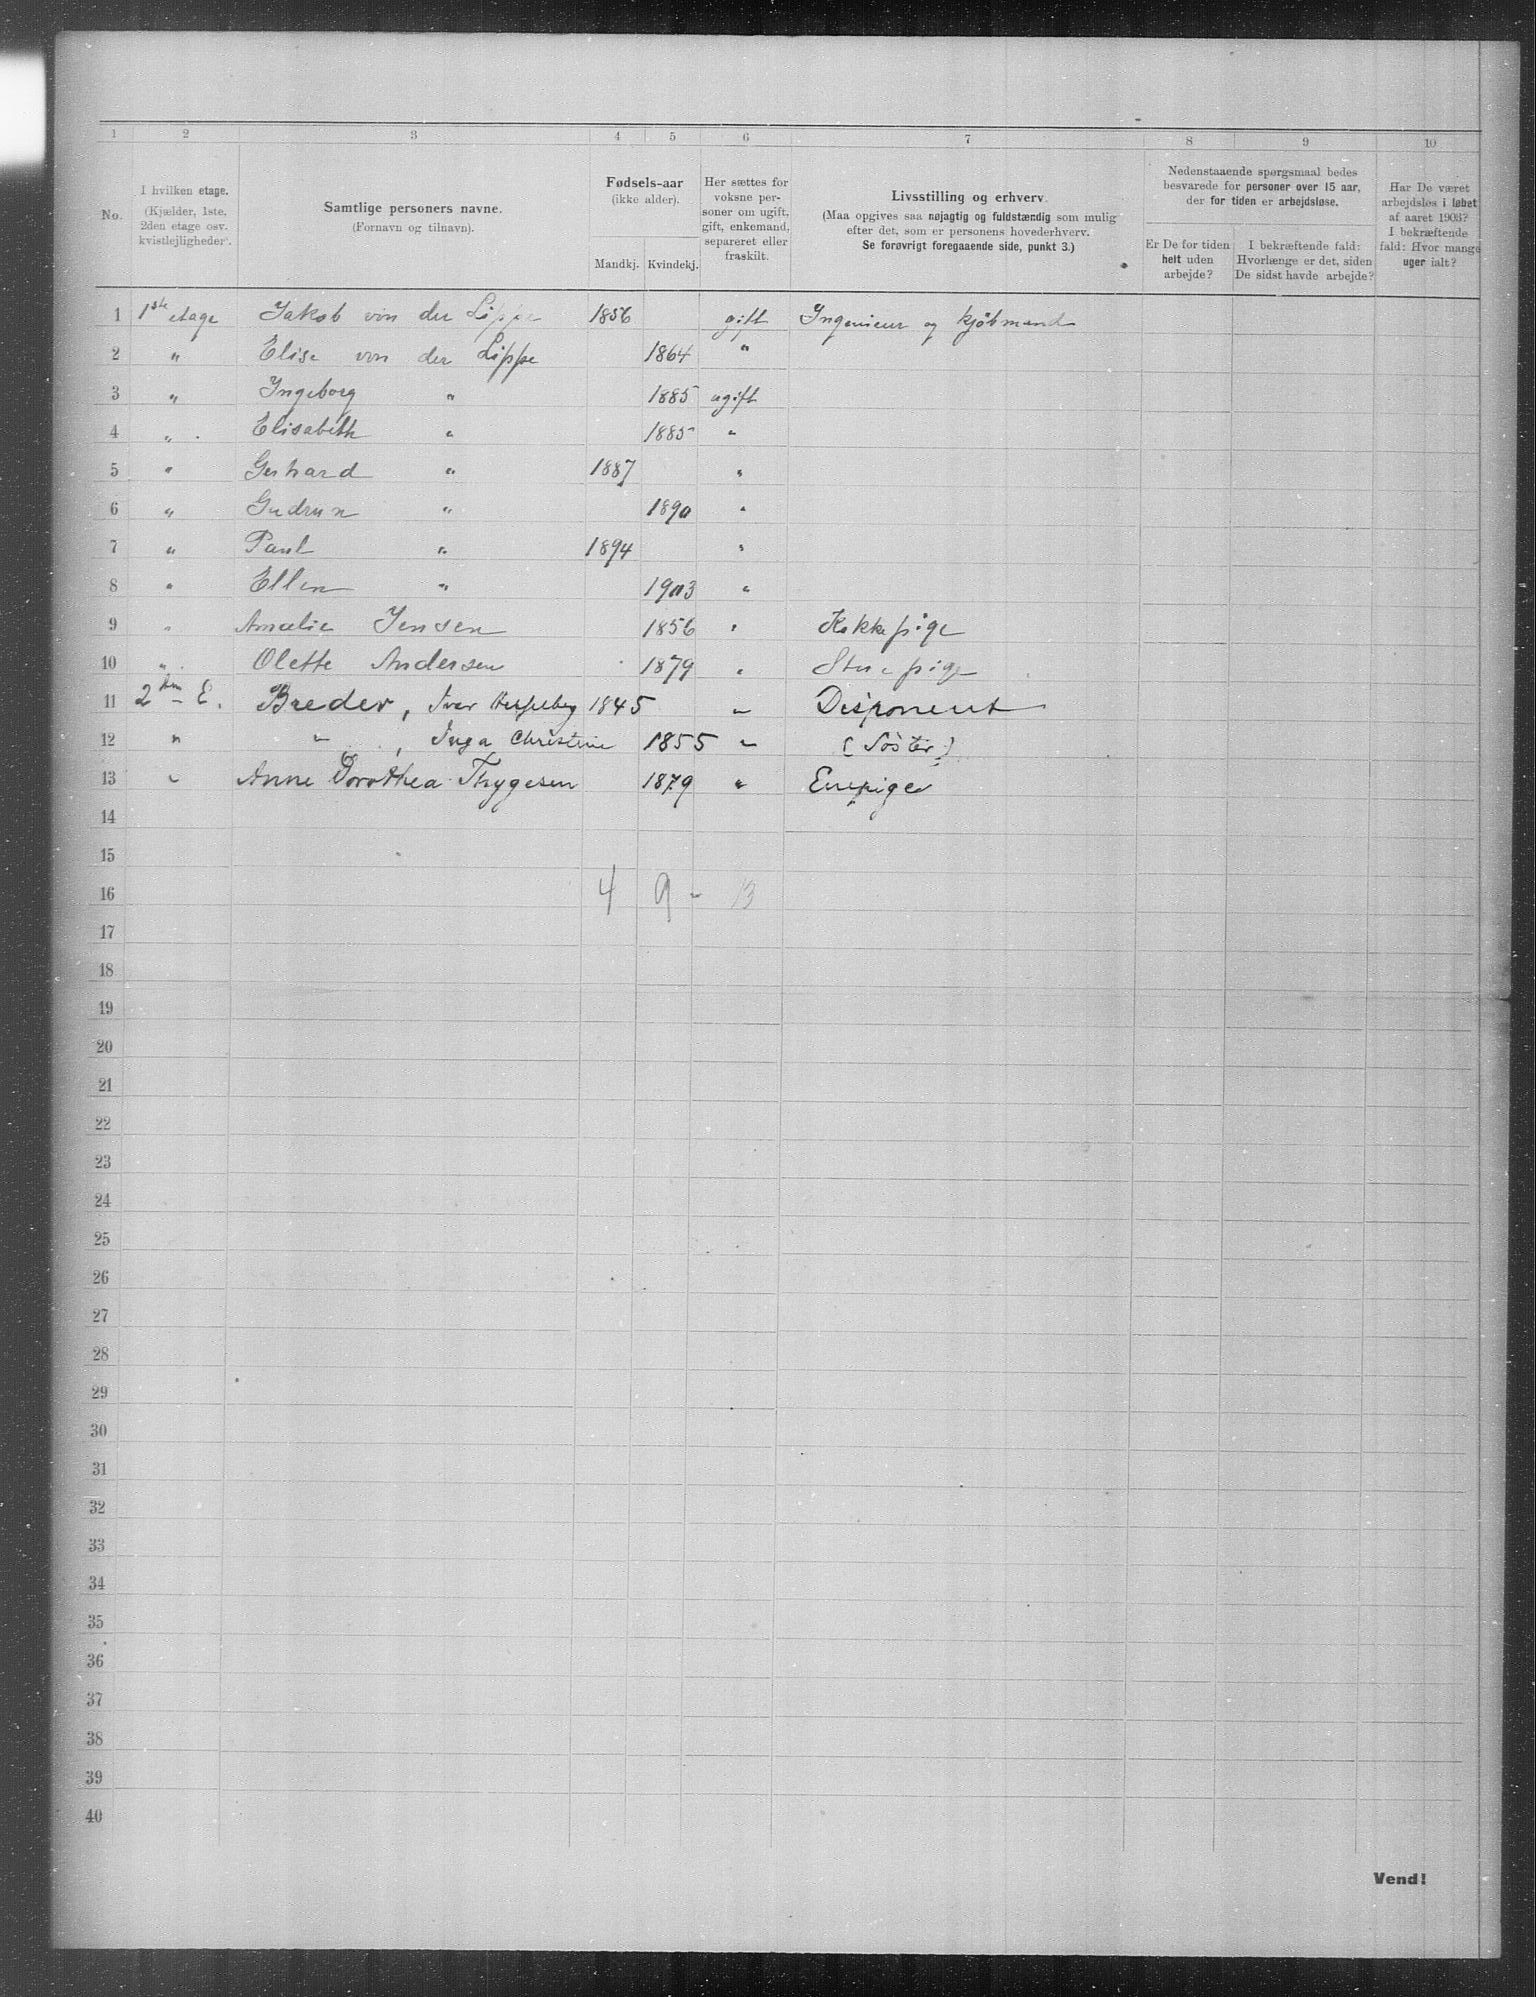 1 2 3 4 5 6 7 8 9 10
No. I hvilken etage. (Kjælder, 1ste, 2den etage osv. kvistlejligheder). Samtlige personers navne. (Fornavn og tilnavn). Fødsels-aar (ikke alder). Mandkj. Kvindekj. Her sættes for voksne personer om ugift, gift, enkemand, separeret eller fraskilt. Livsstilling og erhverv. (Maa opgives saa nøjagtig og fuldstændig som mulig efter det, som er personens hovederhverv. Se forøvrigt foregaaende side, punkt 3.) Nedenstaaende spørgsmaal bedes besvarede for personer over 15 aar, der for tiden er arbejdsløse. Er De for tiden helt uden arbejde? I bekræftende fald: Hvorlænge er det, siden De sidst havde arbejde? Har De været arbejdsløs i løbet af aaret 1903? I bekræftende fald: Hvor mange uger ialt?
1 1ste etage Jakob von der Lippe 1856 gift Ingenieur og kjøbmand
2 " Elise von der Lippe 1864 "
3 " Ingeborg " 1885 ugift
4 " Elisabeth " 1885 "
5 " Gerhard " 1887 "
6 " Gudrun " 1890 "
7 " Paul " 1894 "
8 " Ellen " 1903 "
9 " Amalie Jensen 1856 " Kokkepige
10 " Olette Andersen 1879 " Stuepige
11 2den E. Breder, Ivar 1845 " Disponent
12 " " , Inga Christine 1855 " (Søster)
13 " Anne Dorothea Thygesen 1879 " Enepige
14
15
16 4 9 - 13
17
18
19
20
21
22
23
24
25
26
27
28
29
30
31
32
33
34
35
36
37
38
39
40
Vend!